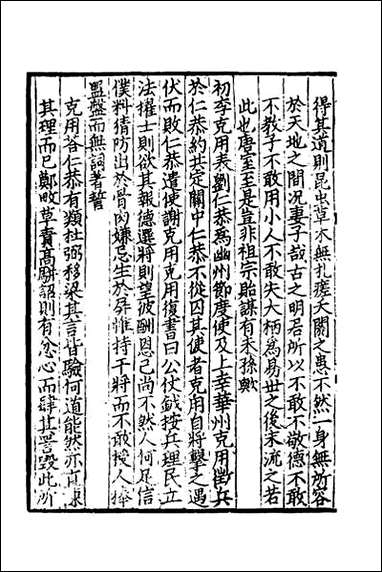 得其道則昆虫草木無札瘥夭閼之患不然一身無所容
於天地之間况妻子哉古之明君所以不敢不敬德不敢
不教子不敢用小人不敢失大柄為易世之後末流之若
此也唐室至是豈非祖宗貽謀有未孫歟
初李克用表劉仁恭為幽州節度使及上幸華州克用徵兵
於仁恭約共定關中仁恭不從囚其使者克用自將擊之遇
伏而敗仁恭遣使謝克用克用復書曰公仗鉞按兵理民立
法擢士則欲其報德選將則望彼酬恩己尚不然人何足信
僕料猜防出於骨肉嫌忌生於屏帷持干將而不敢授人捧
盟盤而無詞著誓
克用荅仁恭有類杜弼移梁其言皆驗何道能然亦
其理而已鄭畋草責高駢詔則有忿心而肆其詈毀此所